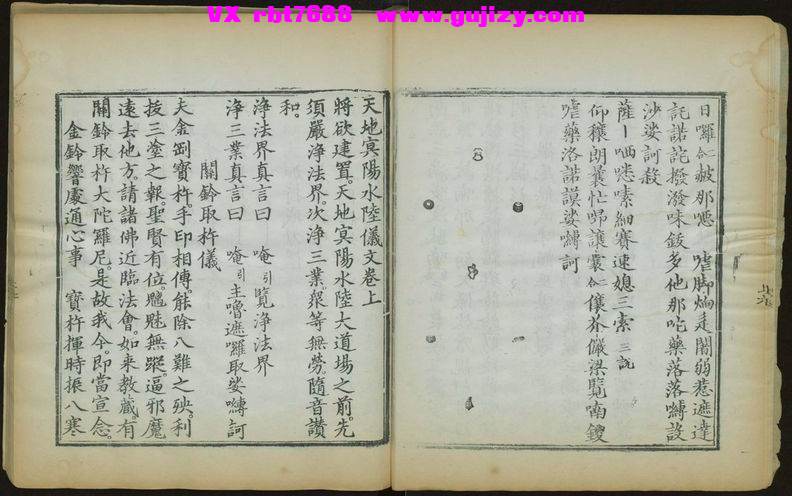 VX rbt7688 www.gujizy.com
日囉仁披那𠿒 嗜脚
闍弱惹遮達
詫諾詫撥潑味鈸多他那吃藥落落嚩設
沙娑訶殺
薩
細賽速媳三索 三說
仰穰朗曩忙
讓囊仁儴芥儼梁覽喃鑁
嗜藥洛諾謨娑嚩訶
天地冥陽水陸儀文卷上
將欲建置。天地冥陽水陸大道場之前。先
須嚴淨法界。次淨三業。眾等無勞。隨音讃
和。
淨法界真言曰 唵引覽淨法界
淨三業真言曰 唵引主嚕遮囉取娑嚩訶
關鈴取杵儀
夫金剛寶杵。手印相傳。能除八難之殃。利
拔三塗之報。聖賢有位。魑魅無蹤。逼邪魔
遠去他方。請諸佛近臨法會。如来教藏。有
關鈴取杵大陀羅尼。是故我今。即當宣念。
金鈴響處通心事 寶杵揮時振八寒